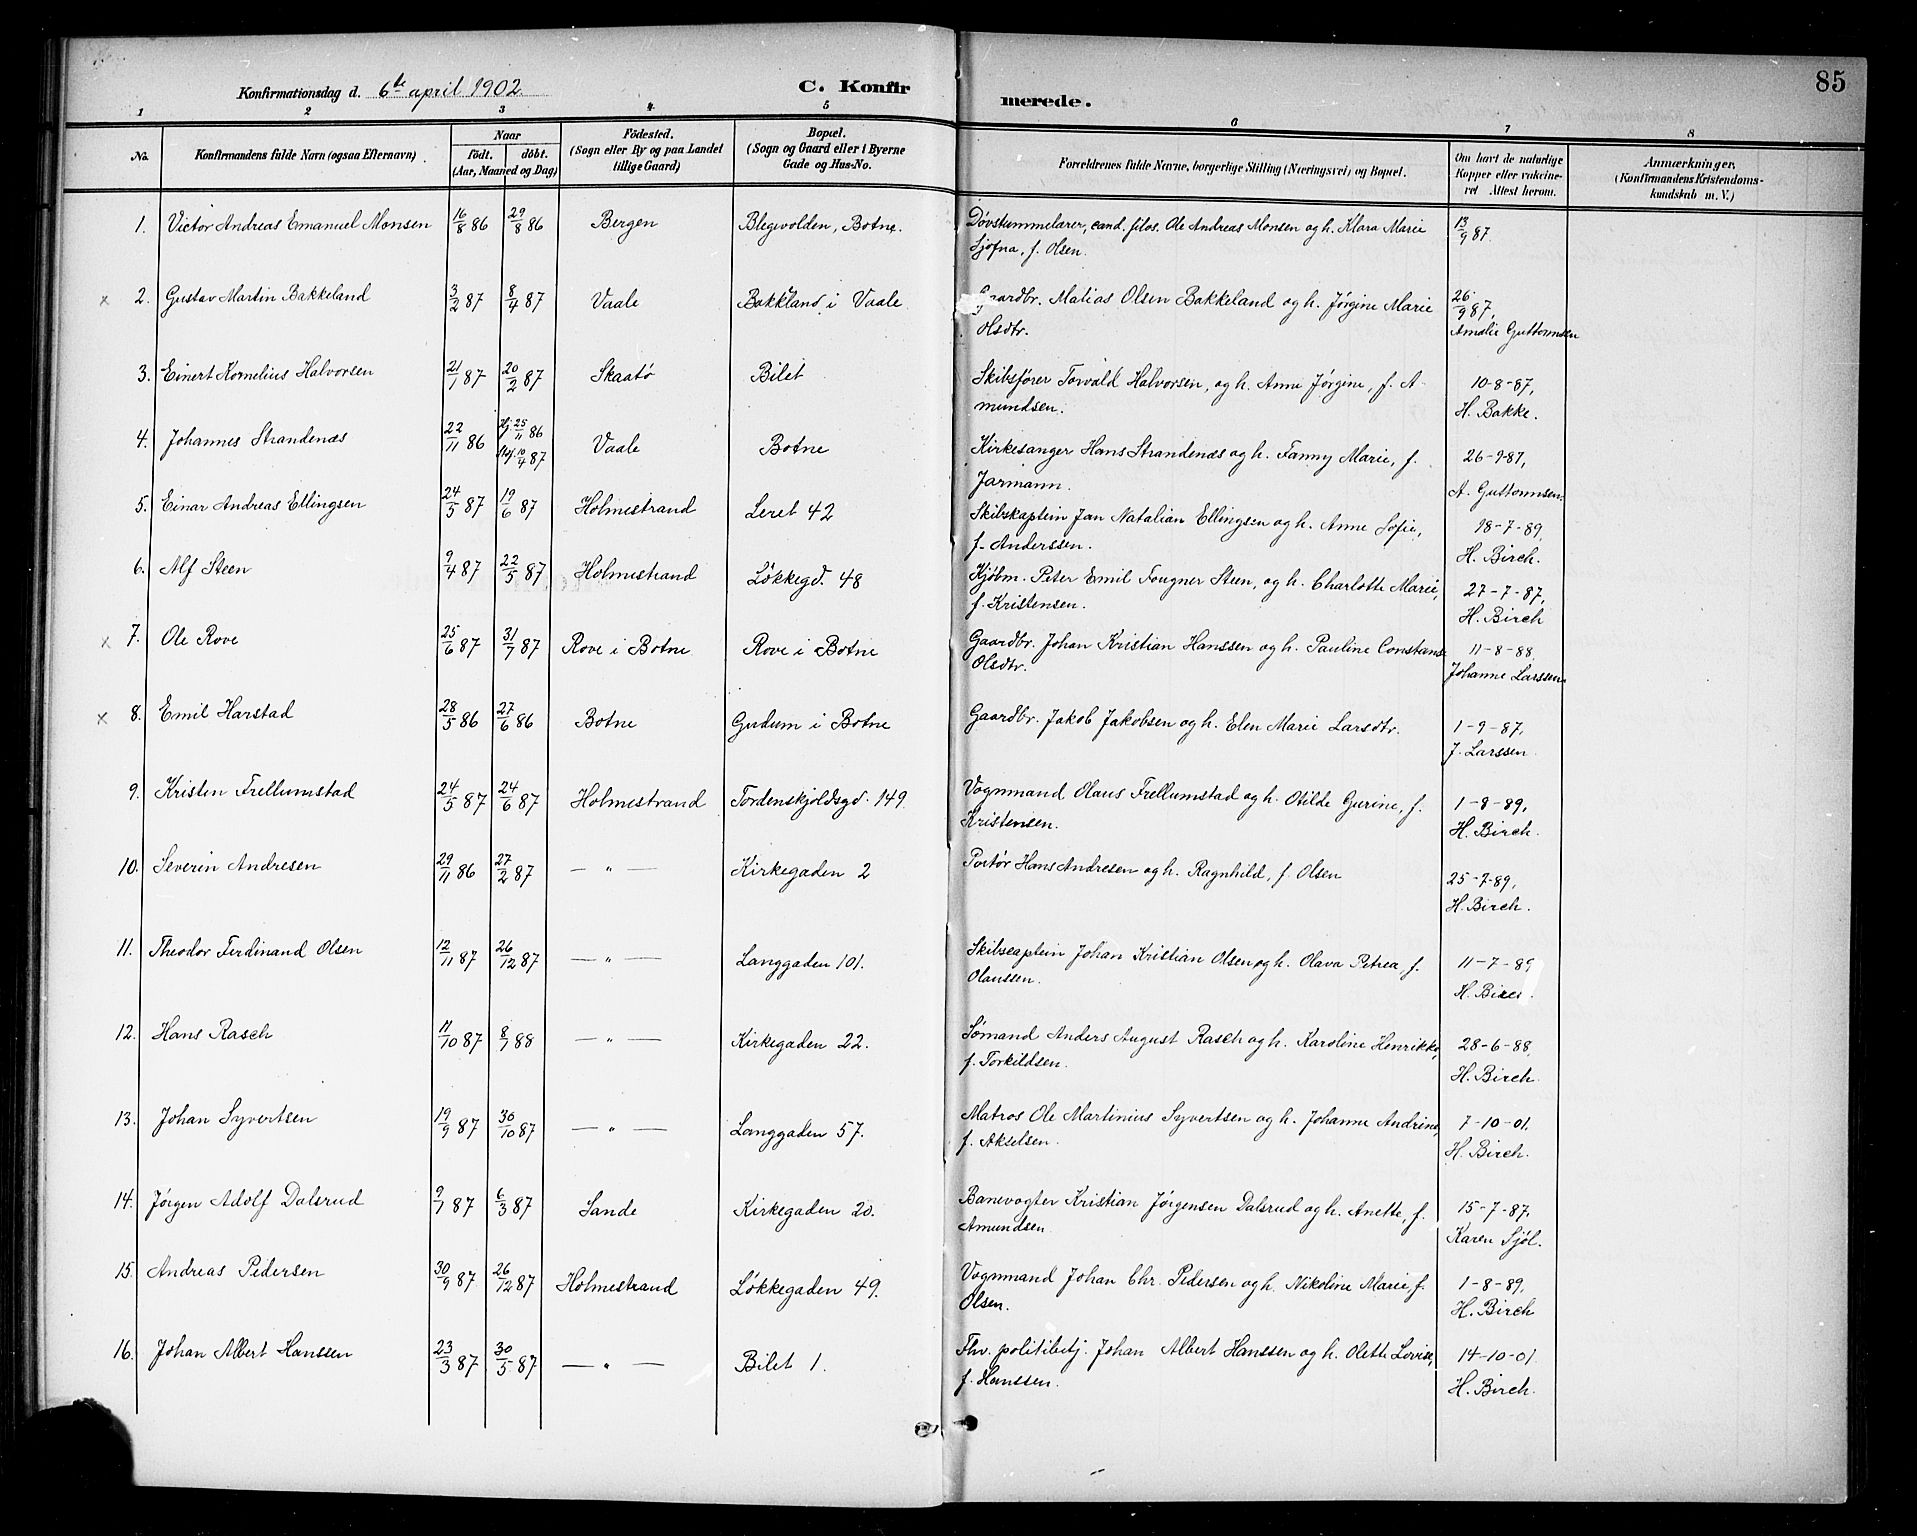 85
Konfirmationsdag d. 6te april 1902.
C. Konfirmerede.
1 2 3 4 5 6 7 8
No.
Konfirmandens fulde Navn (ogsaa Efternavn)
Naar
født. døbt.
(Aar, Maaned og Dag)
Fødested.
(Sogn eller By og paa Landet
tillige Gaard)
Bopæl.
(Sogn og Gaard eller i Byerne
Gade og Hus-No.
Forældrenes fulde Navne, borgerlige Stilling (Næringsvei) og Bopæl.
Om havt de naturlige
Kopper eller vakcine-
ret Attest herom.
Anmærkninger,
(Konfirmandens Kristendoms-
kundskab m. V.)
1. Victor Andreas Emanuel Monsen 16/8 86 29/8 86 Bergen Blegevolden, Botne. Døvstummelærer, cand. filos. Ole Andreas Monsen og h. Klara Marie 13/9 87.
Sjofna, f. Olsen.
x 2. Gustav Martin Bakkeland 3/2 87 8/4 87 Vaale Bakkland i Vaale Gaardbr. Matias Olsen Bakkeland og h. Jørgine Marie 26/9 87,
Olsdtr. Amalie Guttormsen
3. Einert Kornelius Halvorsen 21/1 87 20/2 87 Skaatø Bilet Skibsfører Torvald Halvorsen, og h. Anne Jørgine, f. A- 10-8-87,
mundsen. H. Bakke.
4. Johannes Strandenæs 22/11 86 Hj. 25/11 86 Vaale Botne Kirkesanger Hans Strandenæs og h. Fanny Marie, f. 26-9-87,
10/4 87 Jarmann. A. Guttormsen
5. Einar Andreas Ellingsen 24/5 87 19/6 87 Holmestrand Leret 42 Skibskaptein Jan Natalian Ellingsen og h. Anne Sofie, 18-7-89,
f. Anderssen. H. Birch.
6. Alf Steen 9/4 87 22/5 87 Holmestrand Løkkegd. 48 Kjøbm. Peter Emil Fougner Steen, og h. Charlotte Marie, 27-7-87,
f. Kristensen. H. Birch
x 7. Ole Rove 25/6 87 31/7 87 Rove i Botne Rove i Botne Gaardbr. Johan Kristian Hanssen og h. Pauline Constanse 11-8-88.
Olsdtr. Johanne Larssen
x 8. Emil Harstad 28/5 86 27/6 86 Botne Gudum i Botne Gaardbr. Jakob Jakobsen og h. Elen Marie Larsdtr. 1-9-87,
J. Larssen.
9. Kristen Frellumstad 24/5 87 24/6 87 Holmestrand Tordenskjoldsgd. 149. Vognmand Olaus Frellumstad og h. Otilde Gurine, f. 1-8-89,
Kristensen. H. Birch.
10. Severin Andresen 29/11 86 27/2 87 — " — Kirkegaden 2 Portør Hans Andresen og h. Ragnhild, f. Olsen 25-7-89,
H. Birch.
11. Theodor Ferdinand Olsen 12/11 87 26/12 87 — " — Langgaden 101. Skibscaptein Johan Kristian Olsen og h. Olava Petrea, f. 11-7-89
Olaussen. H. Birch.
12. Hans Rasch 11/10 87 8/1 88 — " — Kirkegaden 22. Sømand Anders August Rasch og h. Karoline Henrikke, 28-6-88,
f. Torkildsen. H. Birch.
13. Johan Syvertsen 19/9 87 30/10 87 — " — Langgaden 57. Matros Ole Martinius Syvertsen og h. Johanne Andrine, 7-10-01.
f. Akselsen. H. Birch.
14. Jørgen Adolf Dalsrud 9/1 87 6/3 87 Sande Kirkegaden 20. Banevogter Kristian Jørgensen Dalsrud og h. Anette, f. 15-7-87,
Amundsen. Karen Sjøl.
15. Andreas Pedersen 30/9 87 26/12 87 Holmestrand Løkkegaden 49. Vognmand Johan Chr. Pedersen og h. Nikoline Marie, f. 1-8-89,
Olsen. H. Birch
16. Johan Albert Hanssen 23/3 87 30/5 87 — " — Bilet 1. Fhv. politibetj. Johan Albert Hanssen og h. Olette Lovise, 14-10-01
f. Hanssen. H. Birch.